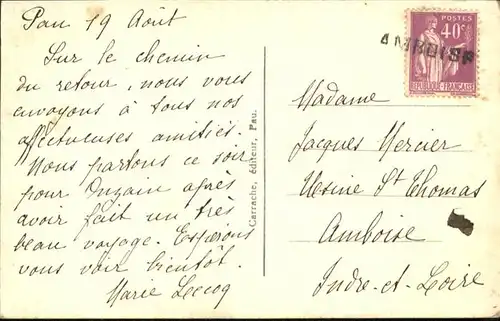 Pau 19 Août
Sur le chemin
du retour, nous vous
envoyons à tous nos
affectueuses amitiés.
Nous partons ce soir
pour Onzain après
avoir fait un très
beau voyage. Espérons
vous voir bientôt.
Marie Lecoq
Carrache, éditeur, Pau.
POSTES
40c
REPUBLIQUE FRANÇAISE
AMBOISE
Madame
Jacques Mercier
Usine St Thomas
Amboise
Indre-et-Loire